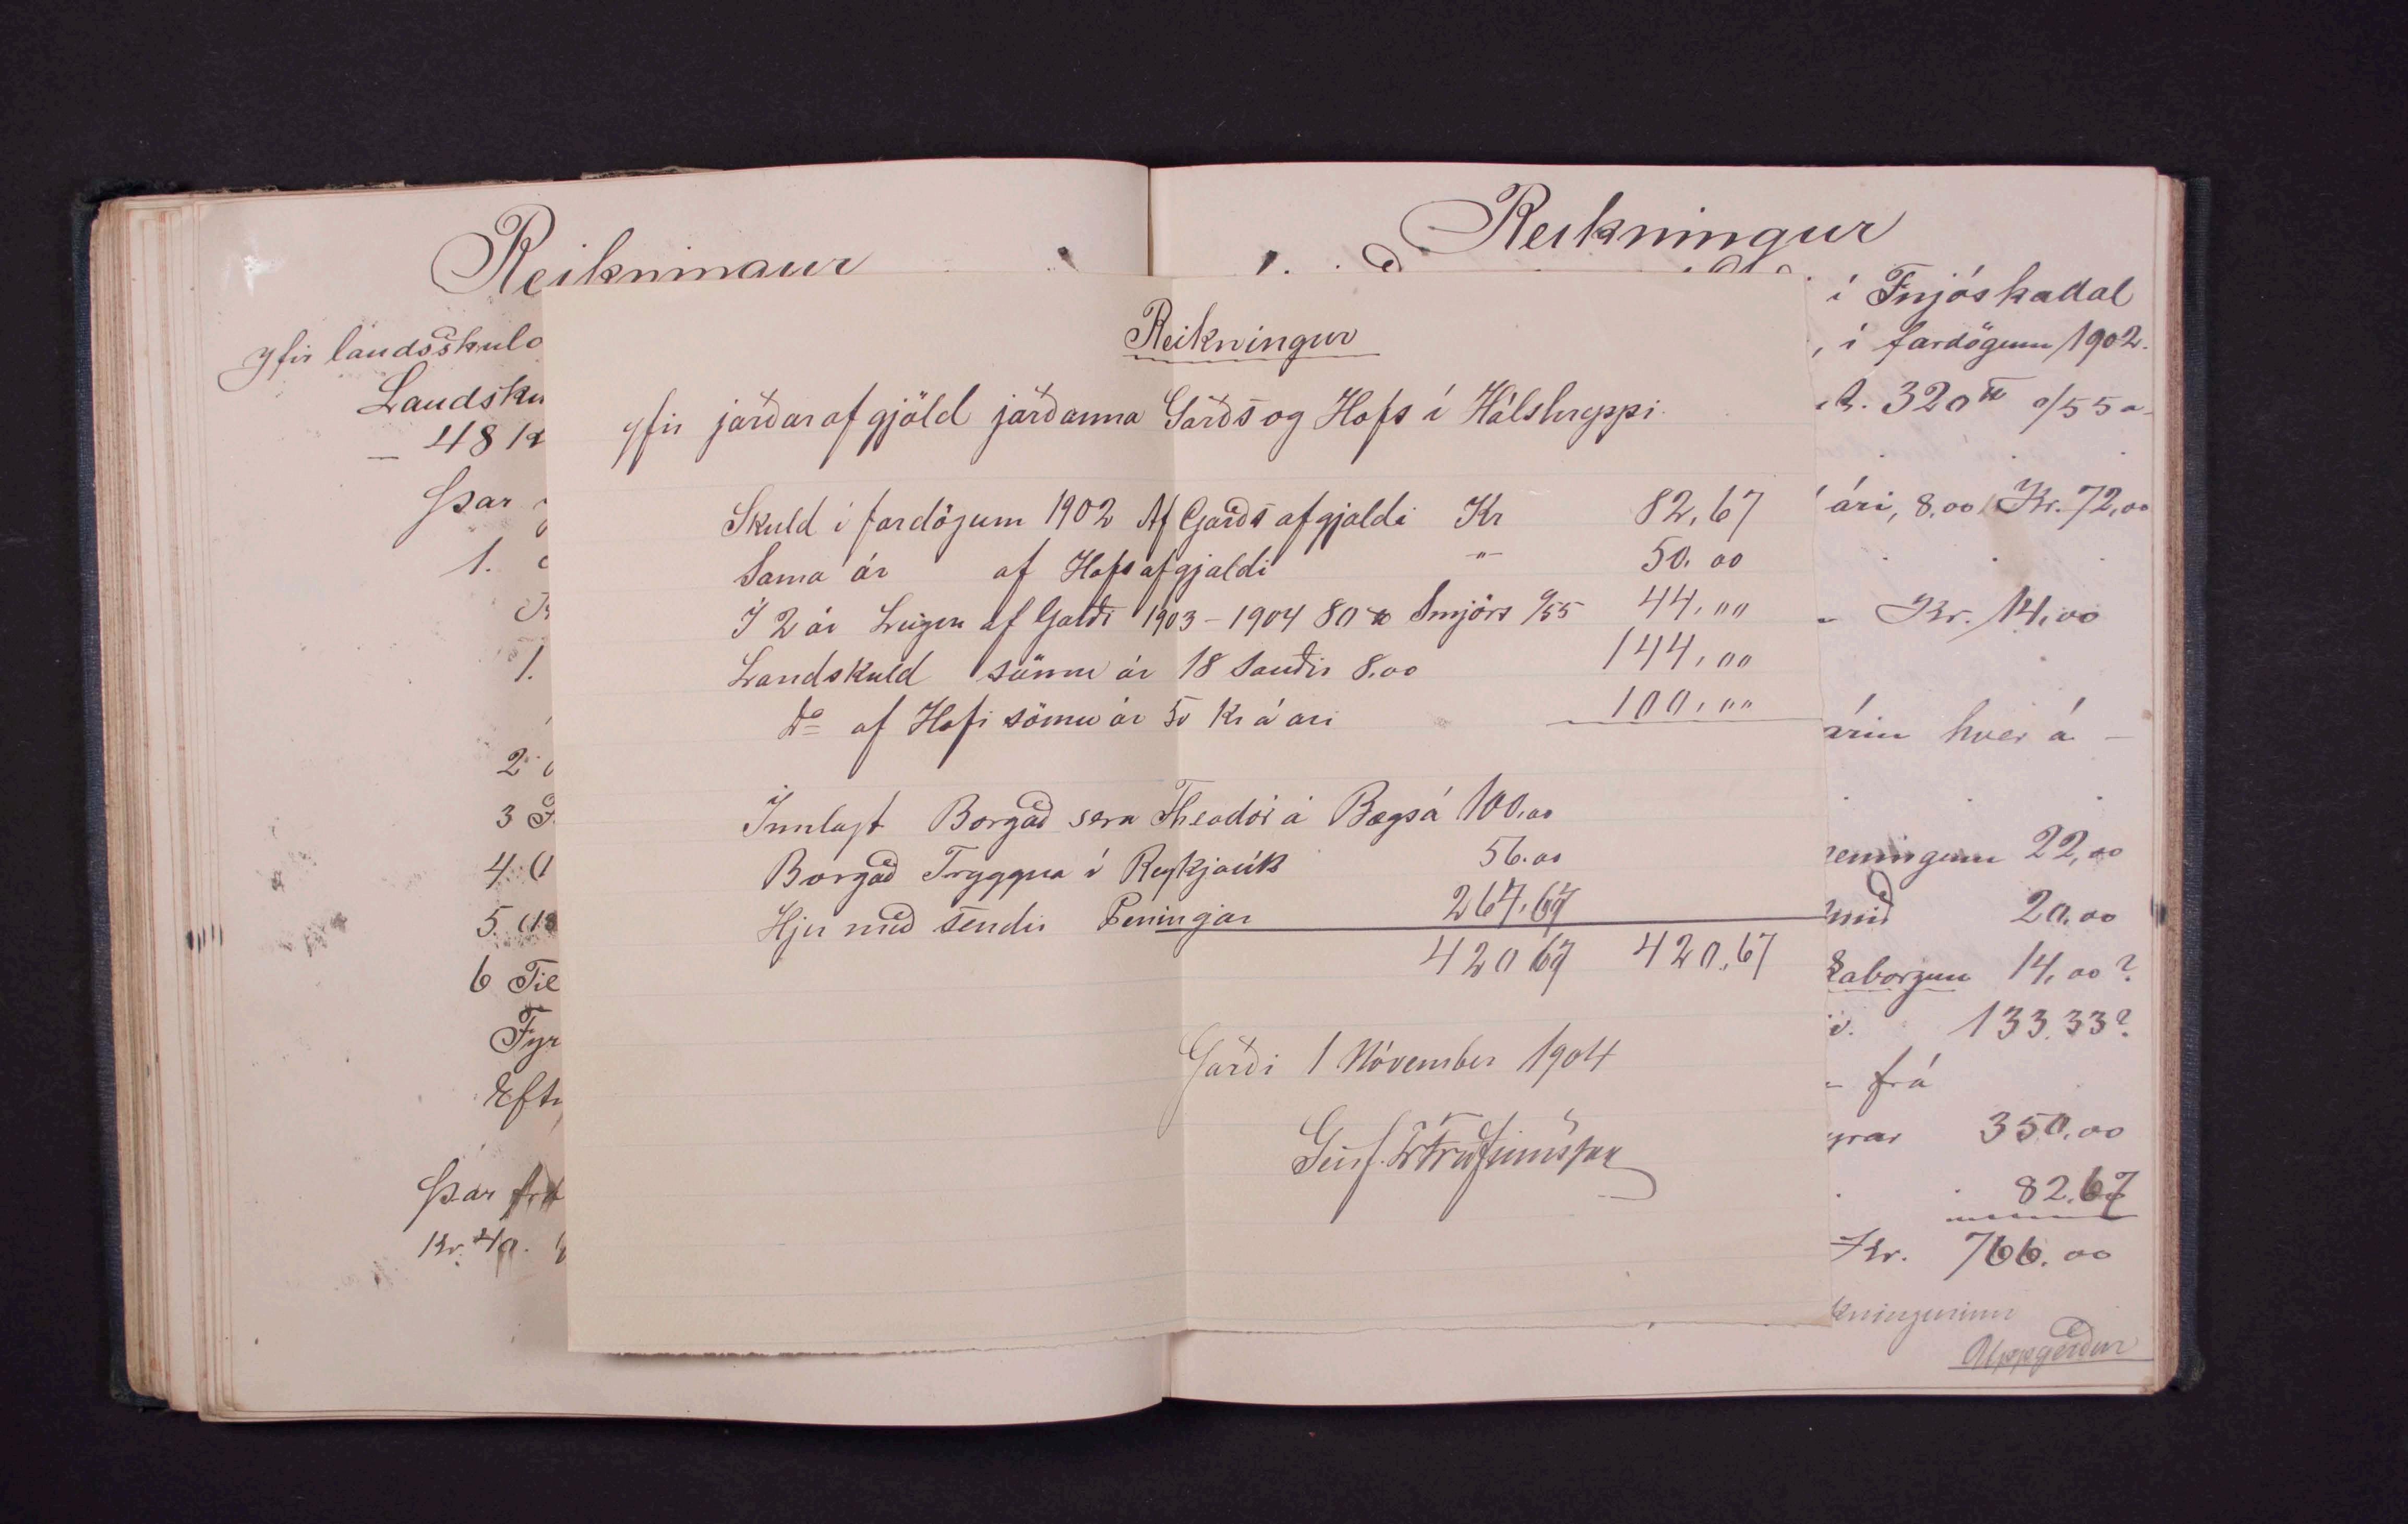 Reikningur
yfir landsskuld
Landsku
48 k
Þar
1.
1.
2
3
4
5.
6 Til
Fyr
Eft
Þar frá
Kr. 40.
Reikningur
yfir jarðarafgjöld jarðanna Garðs og Hofs í Hálshreppi
Skuld í fardögum 1902 Af Garðs afgjaldi Kr 82,67
Sama ár af Hofs afgjaldi " 50.00
Í 2 ár Leigur af Garði 1903-1904 80 ℔ Smjörs 0/55 44,00
Landskuld sömu ár 18 Sauðir 8.00 144,00
Do af Hofi sömu ár 50 Kr á ari 100,00
Innlagt Borgað sera Theodór á Bægsá 100.00
Borgað Tryggva í Reykjavík 56.00
Hjer með sendir Peningar 264,67
420 67 420,67
Garði 1 Nóvember 1904
Reikningur
í Fnjóskadal
, í fardögum 1902.
320 ℔ 0/55 a
ári, 8,00 Kr. 72,00
Kr. 14,00
árin hver á -
peningum 22,00
smið 20.00
aborgun 14,00?
133.33?
frá
350.00
82.67
Kr. 766.00
kningurinn
Uppgerður